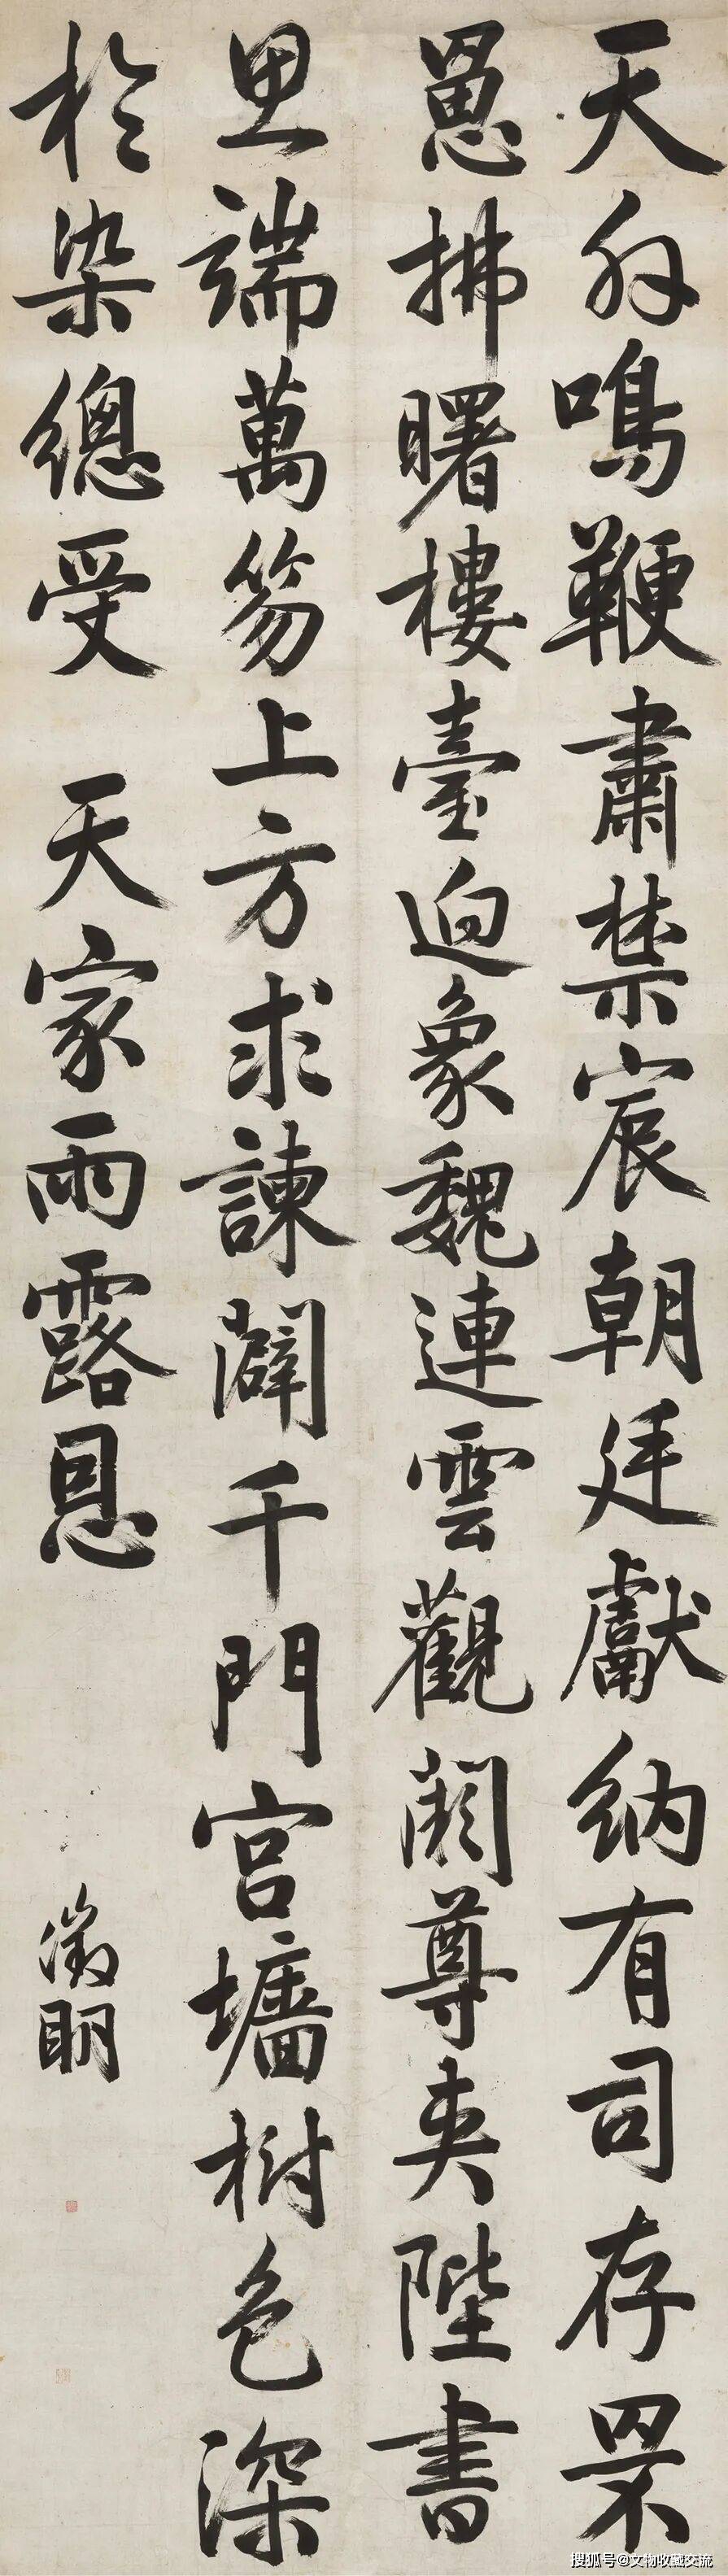 天外鳴鞭肅禁宸朝廷獻納有司存罘
罳拂曙樓臺迥象魏連雲觀闕尊夾陛書
思端萬笏上方求諫闢千門宮墻樹色深
於染總受 天家雨露恩
徵明
搜狐号@文物收藏交流